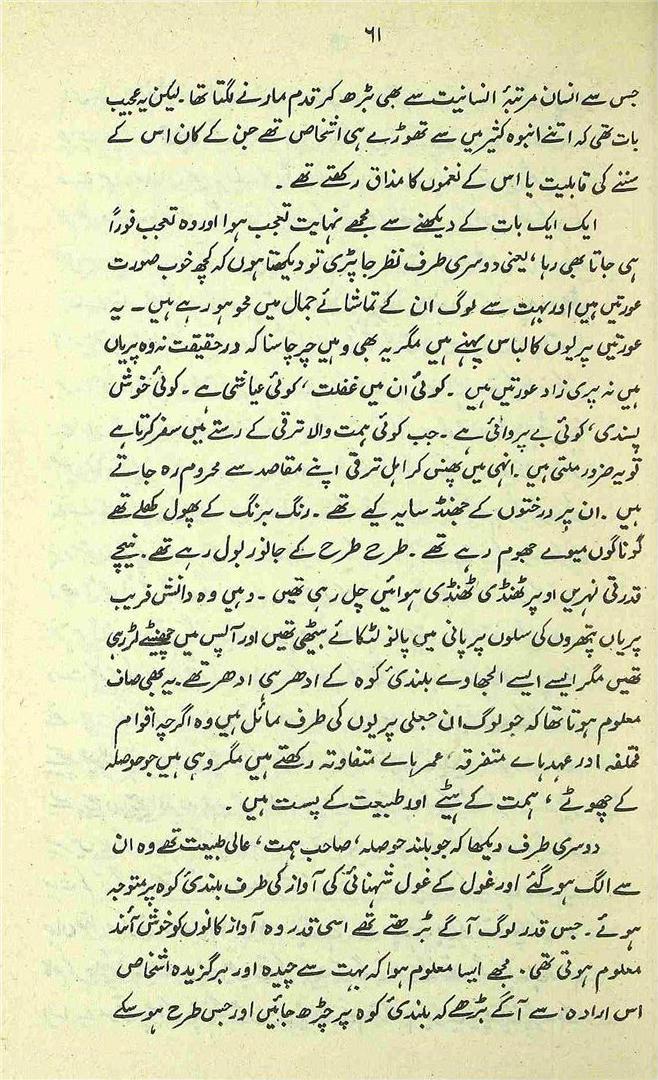 ۶۱
جس سے انسان مرتبۂ انسانیت سے بھی بڑھ کر قدم مارنے لگتا تھا۔ لیکن یہ عجیب
بات تھی کہ اتنے انبوہ کثیر میں سے تھوڑے ہی اشخاص تھے جن کے کان اس کے
سننے کی قابلیت یا اس کے نغموں کا مذاق رکھتے تھے۔
ایک ایک بات کے دیکھنے سے مجھے نہایت تعجب ہوا اور وہ تعجب فوراً
ہی جاتا بھی رہا، یعنی دوسری طرف نظر جا پڑی تو دیکھتا ہوں کہ کچھ خوب صورت
عورتیں ہیں اور بہت سے لوگ ان کے تماشائے جمال میں محو ہو رہے ہیں۔ یہ
عورتیں پریوں کا لباس پہنے ہیں مگر یہ بھی وہیں چرچا سنا کہ درحقیقت نہ وہ پریاں
ہیں نہ پری زاد عورتیں ہیں۔ کوئی ان میں غفلت، کوئی عیاشی ہے۔ کوئی خوش
پسندی، کوئی بے پروائی ہے۔ جب کوئی ہمت والا ترقی کے رستے میں سفر کرتا ہے
تو یہ ضرور ملتی ہیں۔ انہی میں پھنس کر اہل ترقی اپنے مقاصد سے محروم رہ جاتے
ہیں۔ ان پر درختوں کے جھنڈ سایہ کیے تھے۔ رنگ برنگ کے پھول کھلے تھے
گوناگوں میوے جھوم رہے تھے۔ طرح طرح کے جانور بول رہے تھے۔ نیچے
قدرتی نہریں اوپر ٹھنڈی ٹھنڈی ہوائیں چل رہی تھیں۔ وہیں وہ دانش فریب
پریاں پتھروں کی سلوں پر پانی میں پانو لٹکائے بیٹھی تھیں اور آپس میں چھینٹے لڑ رہی
تھیں مگر ایسے ایسے الجھاوے بلندیٔ کوہ کے ادھر ہی ادھر تھے۔ یہ بھی صاف
معلوم ہوتا تھا کہ جو لوگ ان جعلی پریوں کی طرف مائل ہیں وہ اگرچہ اقوام
مختلفہ اور عہدہاے متفرقہ، عمرہاے متفاوتہ رکھتے ہیں مگر وہی ہیں جو حوصلہ
کے چھوٹے، ہمت کے ہیٹے اور طبیعت کے پست ہیں۔
دوسری طرف دیکھا کہ جو بلند حوصلہ، صاحب ہمت، عالی طبیعت تھے وہ ان
سے الگ ہو گئے اور غول کے غول شہنائی کی آواز کی طرف بلندیٔ کوہ پر متوجہ
ہوئے۔ جس قدر لوگ آگے بڑھتے تھے اسی قدر وہ آواز کانوں کو خوش آئند
معلوم ہوتی تھی۔ مجھے ایسا معلوم ہوا کہ بہت سے چیدہ اور برگزیدہ اشخاص
اس ارادہ سے آگے بڑھے کہ بلندیٔ کوہ پر چڑھ جائیں اور جس طرح ہو سکے